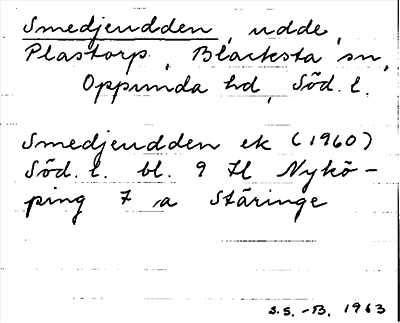 Smedjeudden, udde,
Plastorp, Blacksta sn,
Oppunda hd, Söd. l.
Smedjeudden ek (1960)
Söd. l. bl. 9 H Nykö-
ping 7 a Stäringe
S.S.-B. 1963